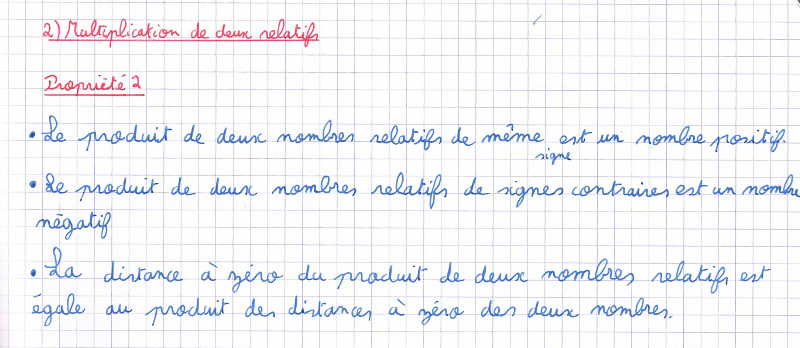 2) Multiplication de deux relatifs
Propriété 2
• Le produit de deux nombres relatifs de même signe est un nombre positif.
• Le produit de deux nombres relatifs de signes contraires est un nombre
négatif
• La distance à zéro du produit de deux nombres relatifs est
égale au produit des distances à zéro des deux nombres.